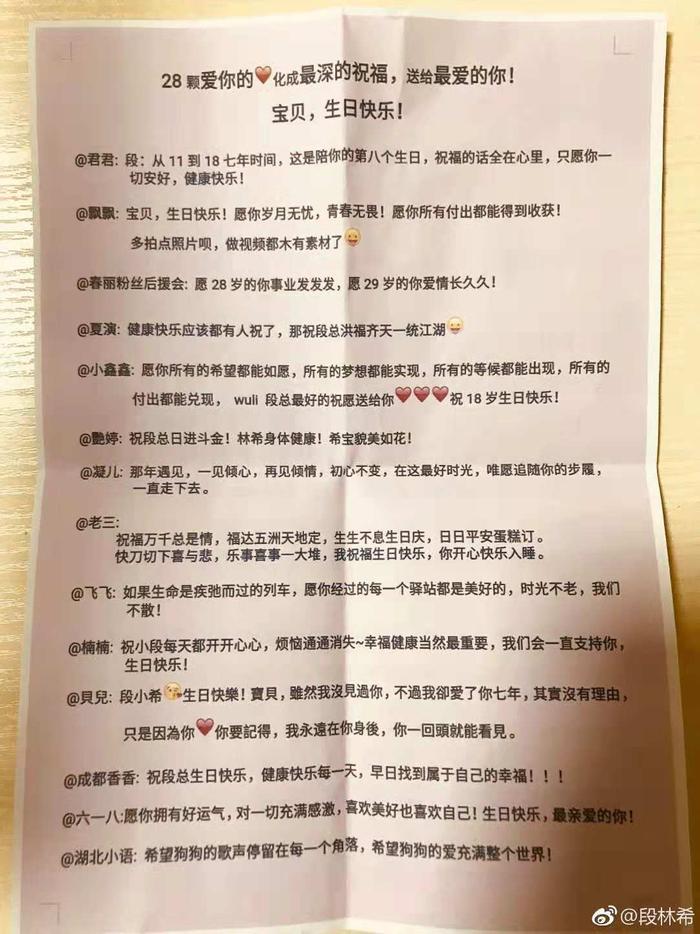 28 颗爱你的❤化成最深的祝福，送给最爱的你！
宝贝，生日快乐！
@君君: 段：从 11 到 18 七年时间，这是陪你的第八个生日，祝福的话全在心里，只愿你一
切安好，健康快乐！
@飘飘: 宝贝，生日快乐！愿你岁月无忧，青春无畏！愿你所有付出都能得到收获！
多拍点照片呗，做视频都木有素材了😜
@春丽粉丝后援会: 愿 28 岁的你事业发发发，愿 29 岁的你爱情长久久！
@夏演: 健康快乐应该都有人祝了，那祝段总洪福齐天一统江湖😜
@小鑫鑫: 愿你所有的希望都能如愿，所有的梦想都能实现，所有的等候都能出现，所有的
付出都能兑现， wuli 段总最好的祝愿送给你❤❤❤祝 18 岁生日快乐！
@艷婷: 祝段总日进斗金！林希身体健康！希宝貌美如花！
@凝儿: 那年遇见，一见倾心，再见倾情，初心不变，在这最好时光，唯愿追随你的步履，
一直走下去。
@老三:
祝福万千总是情，福达五洲天地定，生生不息生日庆，日日平安蛋糕订。
快刀切下喜与悲，乐事喜事一大堆，我祝福生日快乐，你开心快乐入睡。
@飞飞: 如果生命是疾弛而过的列车，愿你经过的每一个驿站都是美好的，时光不老，我们
不散！
@楠楠: 祝小段每天都开开心心，烦恼通通消失~幸福健康当然最重要，我们会一直支持你，
生日快乐！
@貝兒: 段小希😘生日快樂！寶貝，雖然我沒見過你，不過我卻愛了你七年，其實沒有理由，
只是因為你❤你要記得，我永遠在你身後，你一回頭就能看見。
@成都香香: 祝段总生日快乐，健康快乐每一天，早日找到属于自己的幸福！！！
@六一八:愿你拥有好运气，对一切充满感激，喜欢美好也喜欢自己！生日快乐，最亲爱的你！
@湖北小语: 希望狗狗的歌声停留在每一个角落，希望狗狗的爱充满整个世界！
@段林希